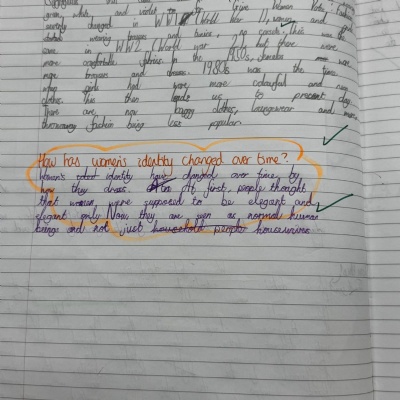 green, white and violet to give Women Vote. Fashion
changed in WW1 (World War 1), women
started wearing trousers and tunics, no corsets. This was the
same in WW2 (World War 2) but there were
more comfortable fabrics. In the 1950s, females
more trousers and dresses. 1980s was the time
when girls had more colourful and
clothes this then leads us to present day.
There are now baggy clothes, loungewear and more
throwaway fashion being less popular.
How has women's identity changed over time?
Women's identity have changed over time by
how they dress. At first, people thought
that women were supposed to be elegant and
elegant only. Now, they are seen as normal human
beings and not just household people housewives.